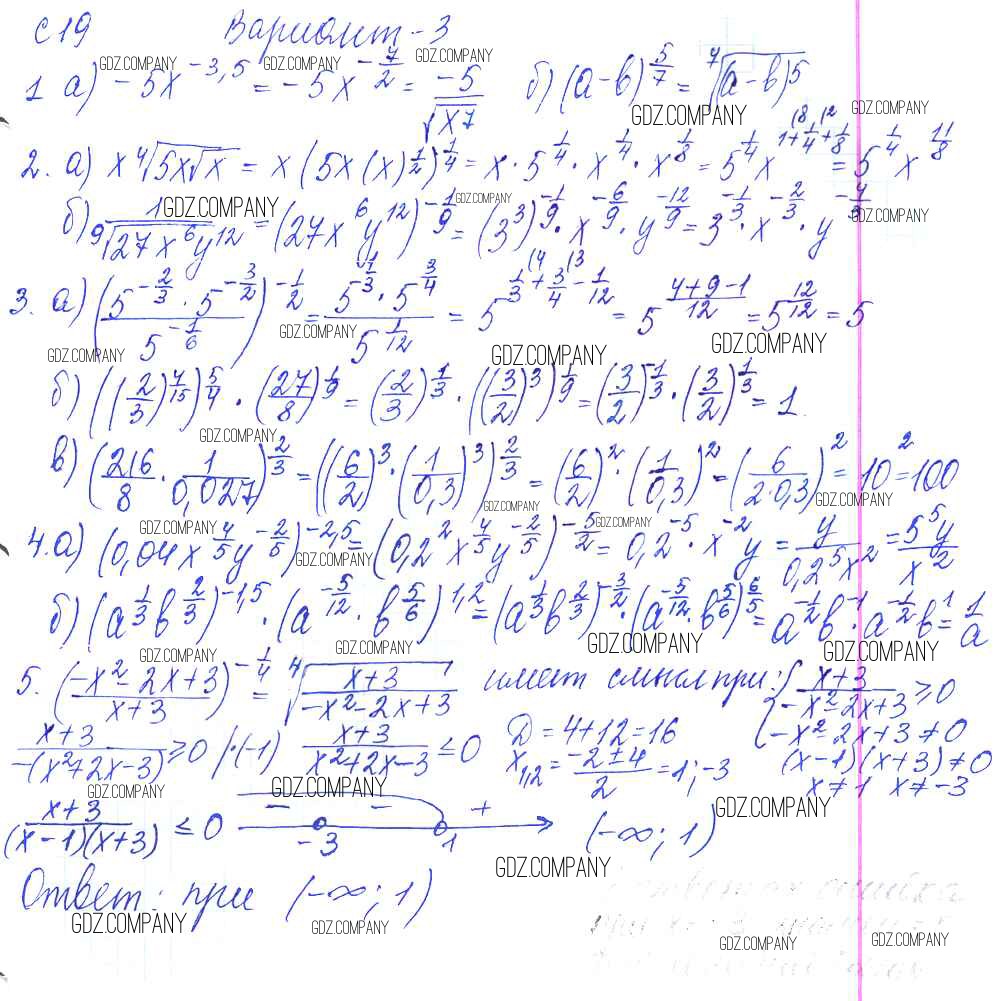 С 19 Вариант - 3
1 а) -5x^{-3,5} = -5x^{-7/2} = -5/√x7 б) (a-b)^{5/7} = ⁷√(a-b)^5
2. а) x ⁴√5x√x = x(5x(x)^{1/2})^{1/4} = x · 5^{1/4} · x^{1/4} · x^{1/8} = 5^{1/4} x^{1+1/4+1/8} = 5^{1/4} x^{11/8}
б) 1/⁹√27x^6y^12 = (27x^6y^12)^{-1/9} = (3^3)^{-1/9} · x^{-6/9} · y^{-12/9} = 3^{-1/3} · x^{-2/3} · y^{-4/3}
3. а) (5^{-2/3} · 5^{-3/2} / 5^{-1/6})^{-1/2} = 5^{1/3} · 5^{3/4} / 5^{1/12} = 5^{1/3+3/4-1/12} = 5^{(4+9-1)/12} = 5^{12/12} = 5
б) ((2/3)^{4/15})^{5/4} · (27/8)^{1/9} = (2/3)^{1/3} · ((3/2)^3)^{1/9} = (3/2)^{-1/3} · (3/2)^{1/3} = 1.
в) (216/8 · 1/0,027)^{2/3} = ((6/2)^3 · (1/0,3)^3)^{2/3} = (6/2)^2 · (1/0,3)^2 = (6/2·0,3)^2 = 10^2 = 100
4. а) (0,04x^{4/5}y^{-2/5})^{-2,5} = (0,2^2x^{4/5}y^{-2/5})^{-5/2} = 0,2^{-5} · x^{-2}y = y/0,2^5x^2 = 5^5y/x^2
б) (a^{1/3}b^{2/3})^{-1,5} · (a^{-5/12} · b^{5/6})^{1,2} = (a^{1/3}b^{2/3})^{-3/2} · (a^{-5/12} · b^{5/6})^{6/5} = a^{-1/2}b^{-1} · a^{-1/2}b^1 = 1/a
5. (-x^2-2x+3/x+3)^{-1/4} = ⁴√(x+3/-x^2-2x+3) имеет смысл при: { x+3/-x^2-2x+3 ≥ 0
-x^2-2x+3 ≠ 0
x+3/-(x^2+2x-3) ≥ 0 | ·(-1) x+3/x^2+2x-3 ≤ 0 Д = 4+12 = 16 (x-1)(x+3) ≠ 0
x_{1,2} = -2±4/2 = 1; -3 x ≠ 1 x ≠ -3
x+3/(x-1)(x+3) ≤ 0 - - + -3 1 (-∞; 1)
Ответ: при (-∞; 1)
GDZ.COMPANY